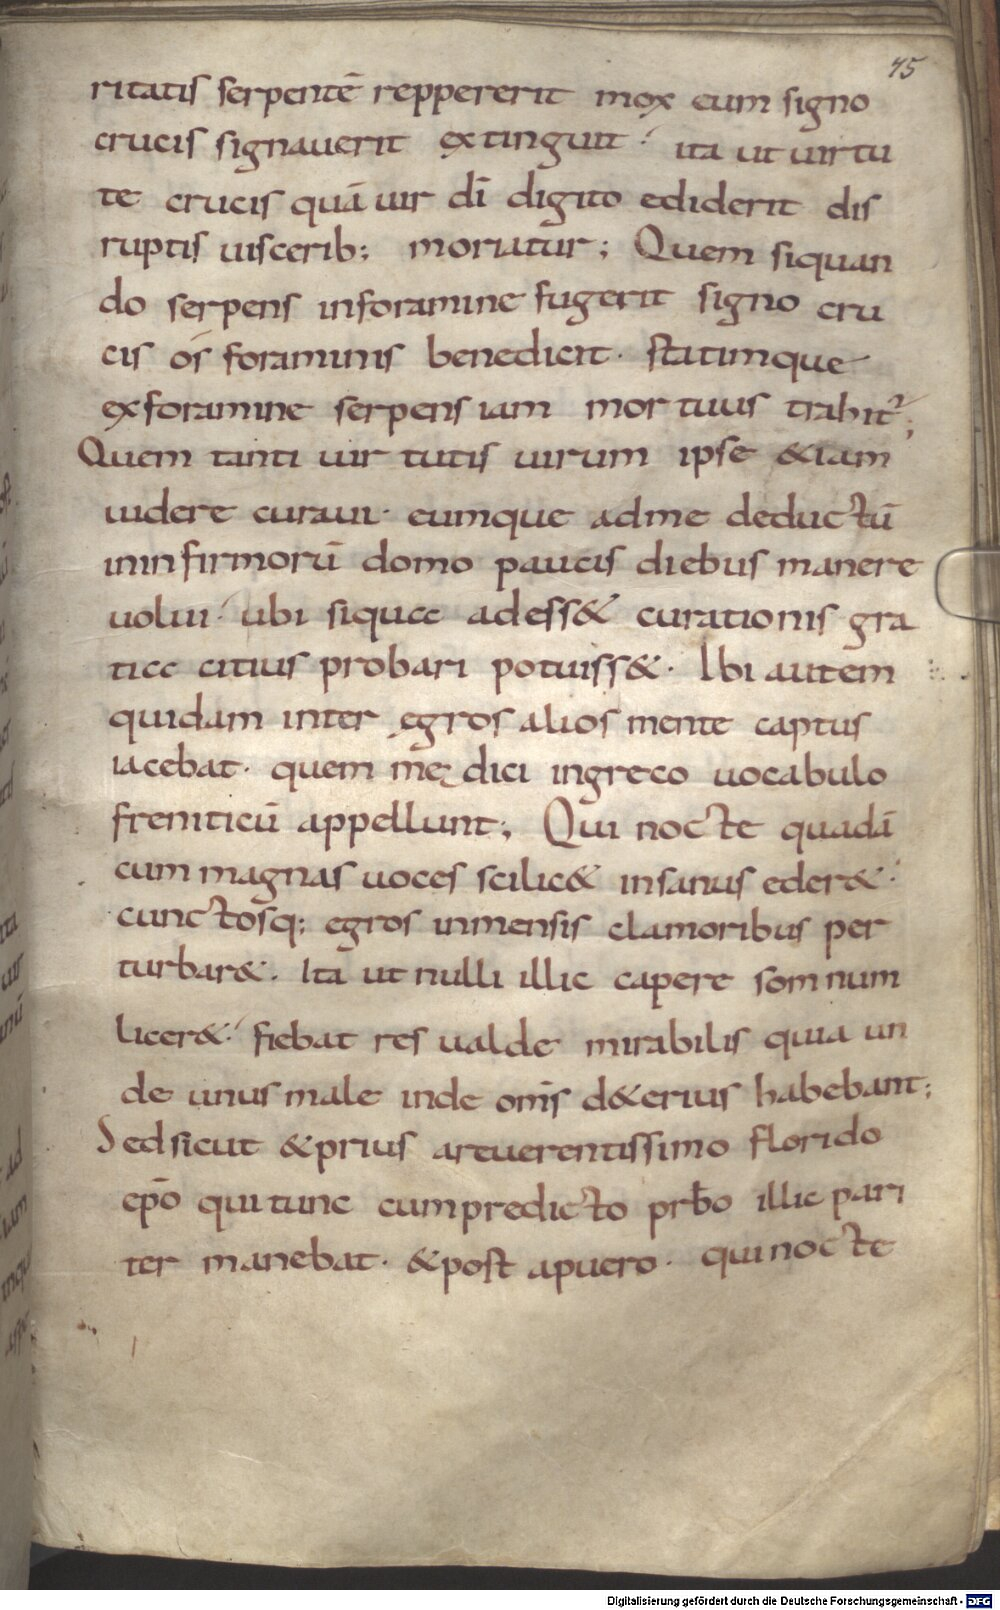 45
ritatis serpentē reppererit mox eum signo
crucis signauerit extinguit· ita ut uirtu
te crucis quā uir dī digito ediderit dis
ruptis uiscerib; moriatur; Quem siquan
do serpens inforamine fugerit signo cru
cis os foraminis benedicit· statimque
exforamine serpens iam mortuus trahit᷑;
Quem tanti uirtutis uirum ipse &iam
uidere curaui· eumque adme deductū
ininfirmorū domo paucis diebus manere
uolui· ubi siqua adess& curationis gra
tia citius probari potuiss&· Ibi autem
quidam inter egros alios mente captus
iacebat· quem medici ingreco uocabulo
freniticū appellunt; Qui nocte quadā
cum magnas uoces scilic& insanus eder&·
cunctosq; egros inmensis clamoribus per
turbar&· Ita ut nulli illic capere somnum
licer&· fiebat res ualde mirabilis quia un
de unus male inde om̄s d&erius habebant;
Sedsicut &prius areuerentissimo florido
ep̄o quitunc cumpredicto prb̄o illic pari
ter manebat· &post apuero· quinocte
Digitalisierung gefördert durch die Deutsche Forschungsgemeinschaft - DFG